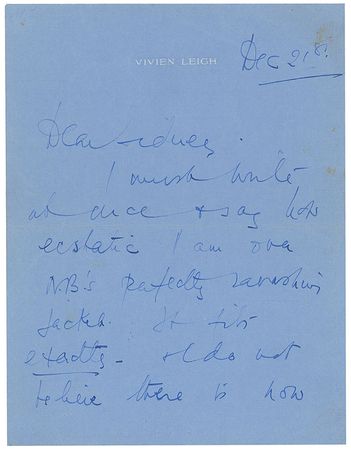 VIVIEN LEIGH
Dec 21st
Dear Sidney.
I must write
at once & say how
ecstatic I am over
N.B's perfectly ravishing
jacket. It fits
exactly - & I do not
believe there is now